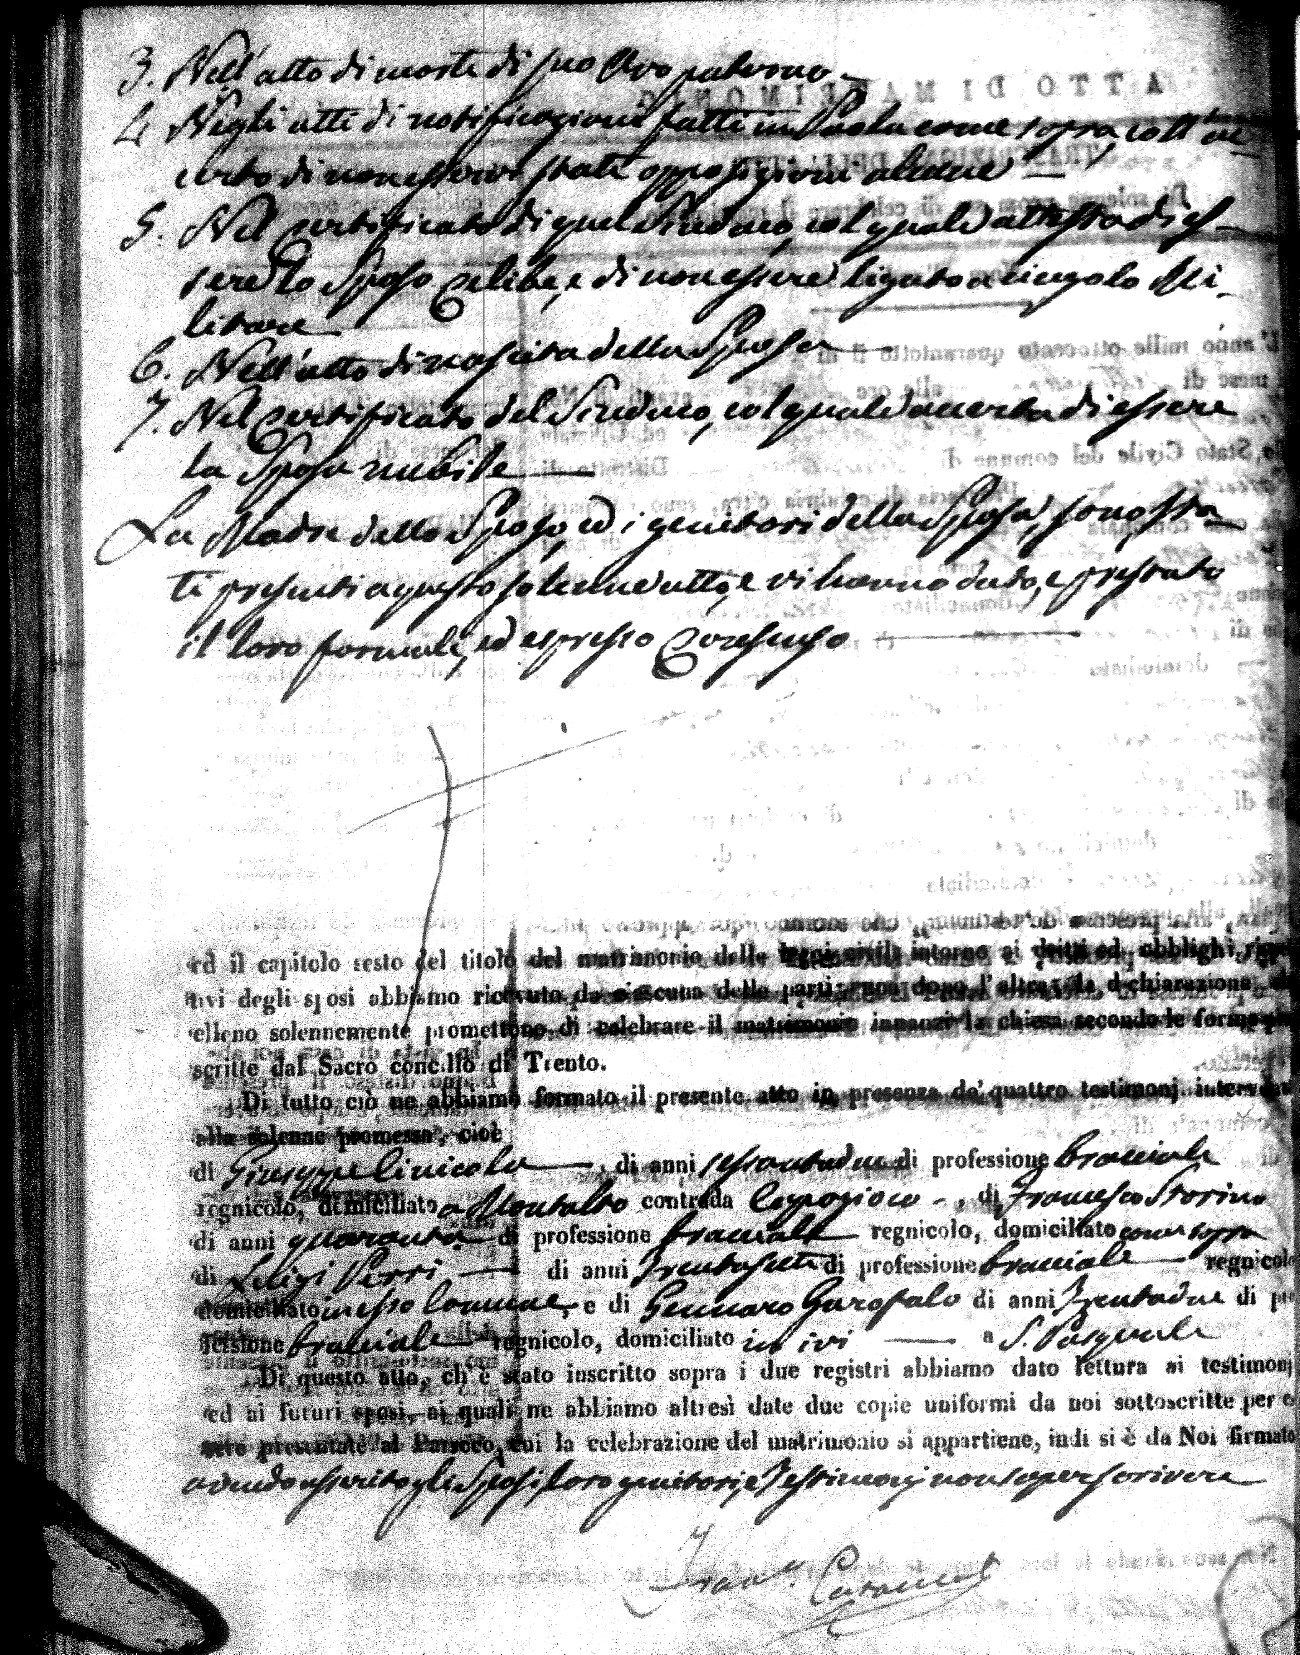 3. Nell'atto di morte di suo Avo paterno
4. Negli atti di notificazioni fatti in Paola come sopra, coll'ac
certo di non essersi state opposizioni alcune —
5. Nel certificato di quel Sindaco, col quale attesta di es-
sere lo Sposo celibe, e di non essere ligato a cingolo Mi-
litare
6. Nell'atto di nascita della Sposa
7. Nel certificato del Sindaco, col quale accerta di essere
la Sposa nubile
La Madre dello Sposo, ed i genitori della Sposa, sono sta-
ti presenti a questo solenne atto, e vi hanno dato, e prestato
il loro formale, ed espresso Consenso
ed il capitolo sesto del titolo del matrimonio delle leggi civili intorno ai dritti ed obblighi rispet
tivi degli sposi abbiamo ricevuto da ciascuna delle parti una dopo l'altra la dichiarazione, che
elleno solennemente promettono di celebrare il matrimonio innanzi la chiesa secondo le forme pre
scritte dal Sacro concilio di Trento.
Di tutto ciò ne abbiamo formato il presente atto in presenza de' quattro testimonj intervenu
alla solenne promessa, cioè
di Giuseppe Cinicola —, di anni sessantadue di professione bracciale
regnicolo, domiciliato a Montalto contrada -, di Francesco Storino
di anni quaranta di professione bracciale regnicolo, domiciliato come sopra
di Luigi Perri — di anni trentasette di professione bracciale regnicolo
domiciliato in esso Comune, e di Gennaro Garofalo di anni trentadue di pro
fessione bracciale regnicolo, domiciliato in ivi — a S. Pasquale
Di questo atto, ch'è stato inscritto sopra i due registri abbiamo dato lettura ai testimonj
ed ai futuri sposi, ai quali ne abbiamo altresì date due copie uniformi da noi sottoscritte per es
sere presentate al Parroco, cui la celebrazione del matrimonio si appartiene, indi si è da Noi firmato
avendo asserito gli Sposi, loro genitori, e Testimonj non saper scrivere
Fran.